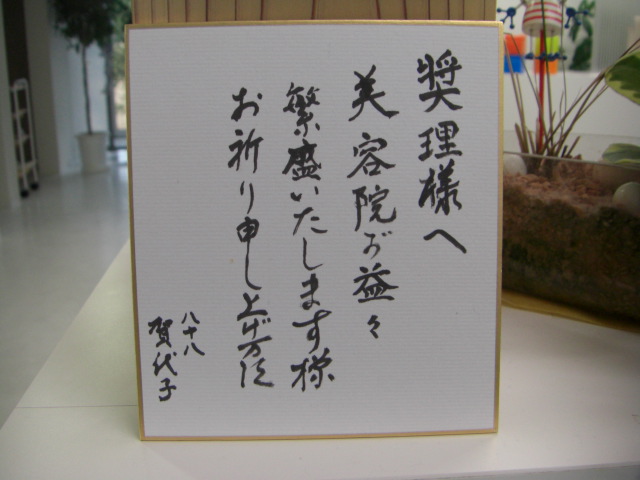 奨理様へ
美容院が益々
繁盛いたします様
お祈り申し上げます
八十八
賀代子